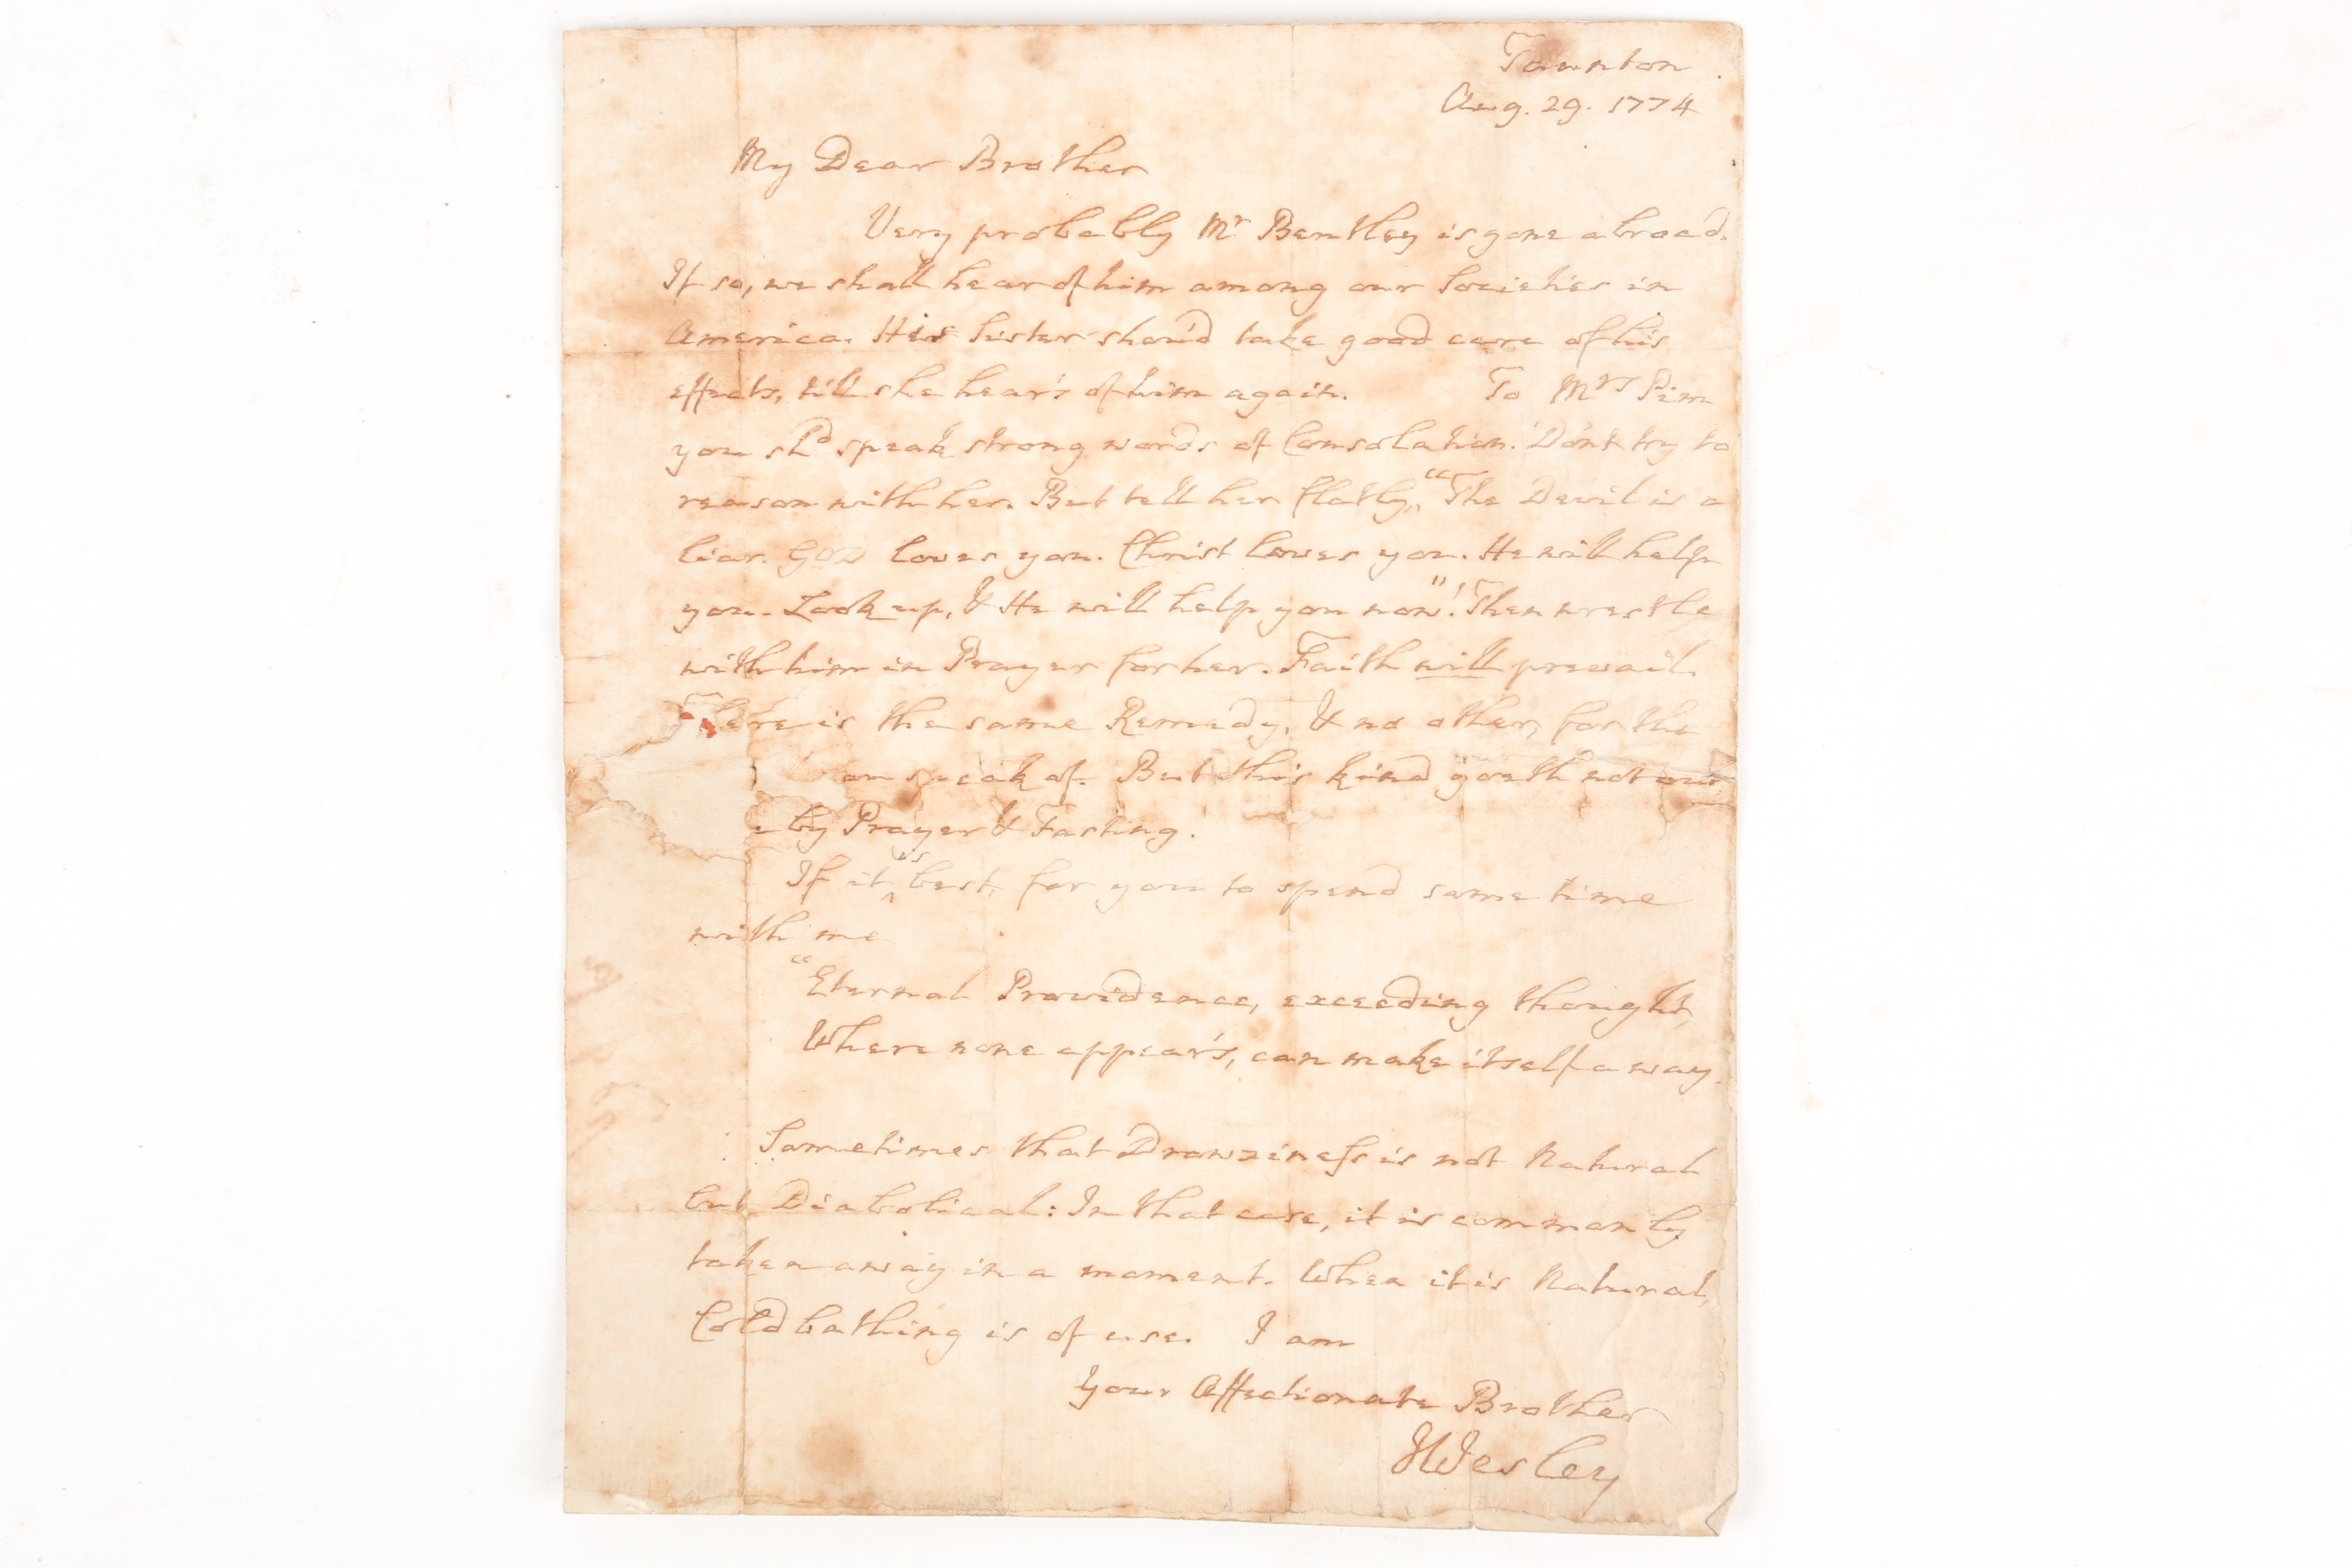 Taunton
Aug. 29. 1774
My Dear Brother
Very probably Mr Bentley is gone abroad.
If so, we shall hear of him among our Societies in
America. His Sister shou'd take good care of his
effects, till she hear's of him again. To Mrs Pim
you shd speak strong words of Consolation. Don't try to
reason with her. But tell her flatly, "The Devil is a
liar. GOD loves you. Christ loves you. He will help
you. Look up, & He will help you now"! Then wrestle
with him in Prayer for her. Faith will prevail.
There is the same Remedy, & no other, for the
ou speak of. But this kind goeth not out
by Prayer & Fasting.
If it is best, for you to spend some time
with me
"Eternal Providence, exceeding thought,
Where none appear's, can make itself a way.
Sometimes that Drowziness is not Natural
but Diabolical: In that case, it is commonly
taken away in a moment. When it is Natural,
Cold bathing is of use. I am
Your Affectionate Brother
JWesley